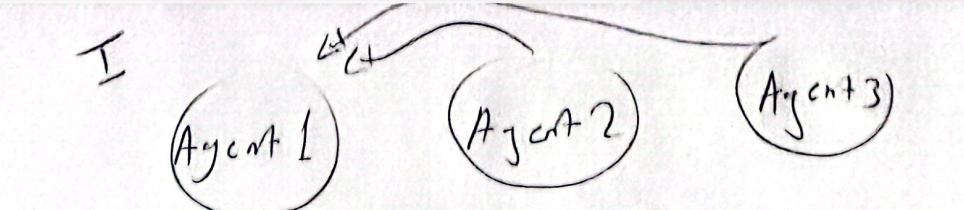 I
Agent 1 Agent 2 Agent 3